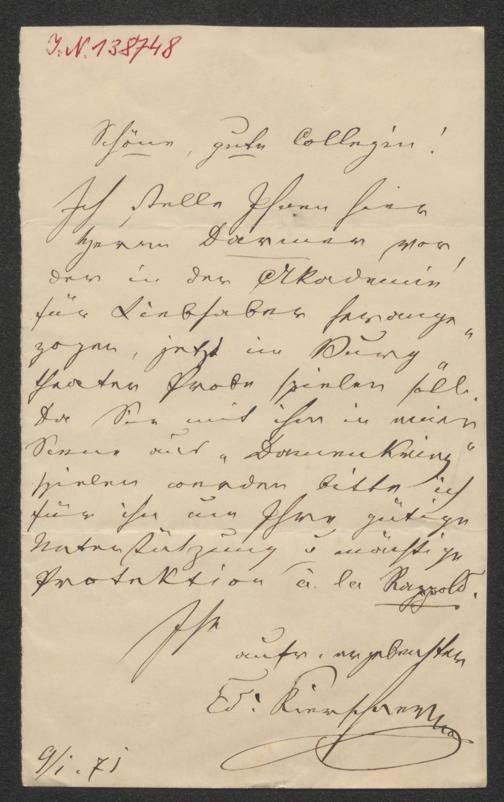 J.N. 138748
Schöne, gute Collegin!
Ich stelle Ihnen hier
Herrn Darmer vor,
der in der Akademie
für Liebhaber herange
zogen, jetzt im Burg
theater Probe spielen soll.
Da Sie mit ihm in einer
Scene aus „Damenkrieg“
spielen werden bitte ich
für ihn um Ihre gütige
Unterstützung u mächtige
Protektion à la Rappold.
Ihr
aufr. ergebenster
Ed: Kierschner
9/1. 71